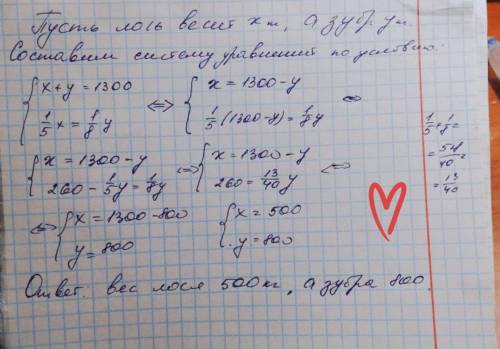 Пусть лось весит x т, а зубр y т.
Составим систему уравнений по условию:
{ x+y = 1300
1/5 x = 1/8 y
<=> { x = 1300-y
1/5 (1300-y) = 1/8 y
<=>
{ x = 1300-y
260 - 1/5 y = 1/8 y
<=> { x = 1300-y
260 = 13/40 y
<=>
<=> { x = 1300-800
y = 800
{ x = 500
y = 800
1/5 + 1/8 =
= 13/40
Ответ: вес лося 500 кг, а зубра 800.